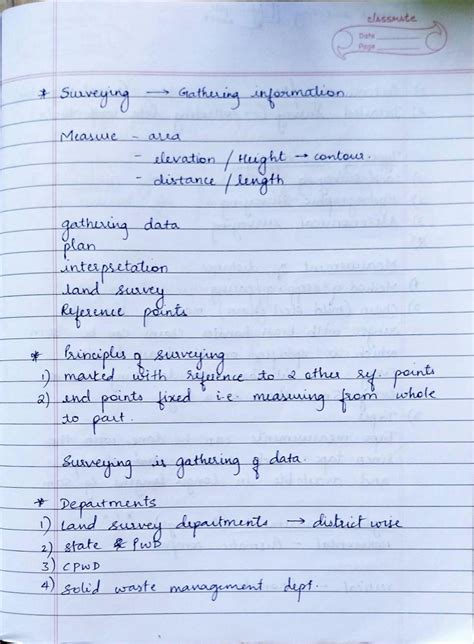 classmate
Date
Page
* Surveying → Gathering information
Measure - area
- elevation / Height → contour.
- distance / length
gathering data
plan
interpretation
land survey
Reference points
* Principles of surveying
1) marked with reference to 2 other ref. points
2) end points fixed i.e. measuring from whole
to part.
Surveying is gathering of data.
* Departments
1) Land survey departments → district wise
2) state & PWD
3) CPWD
4) Solid waste management dept.